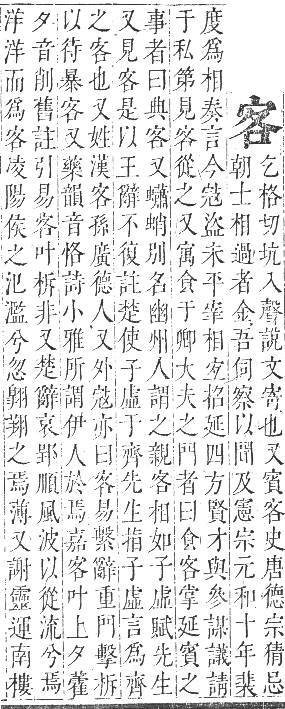 客
乞格切坑入聲說文寄也又賓客史唐德宗猜忌
朝士相過者金吾伺察以聞及憲宗元和十年裴
度爲相奏言今宼盜未平宰相宜招延四方賢才與參謀議請
于私第見客從之又寓食于卿大夫之門者曰食客掌延賓之
事者曰典客又蠨蛸別名幽州人謂之親客相如子虛賦先生
又見客是以王辭不復註楚使子虛于齊先生指子虛言爲齊
之客也又姓漢客孫廣德人又外宼亦曰客易繫辭重門擊柝
以待暴客又藥韻音恪詩小雅所謂伊人於焉嘉客叶上夕藿
夕音削舊註引易客叶柝非又楚辭哀郢順風波以從流兮焉
洋洋而爲客凌陽侯之氾濫兮忽翱翔之焉薄又謝靈運南樓